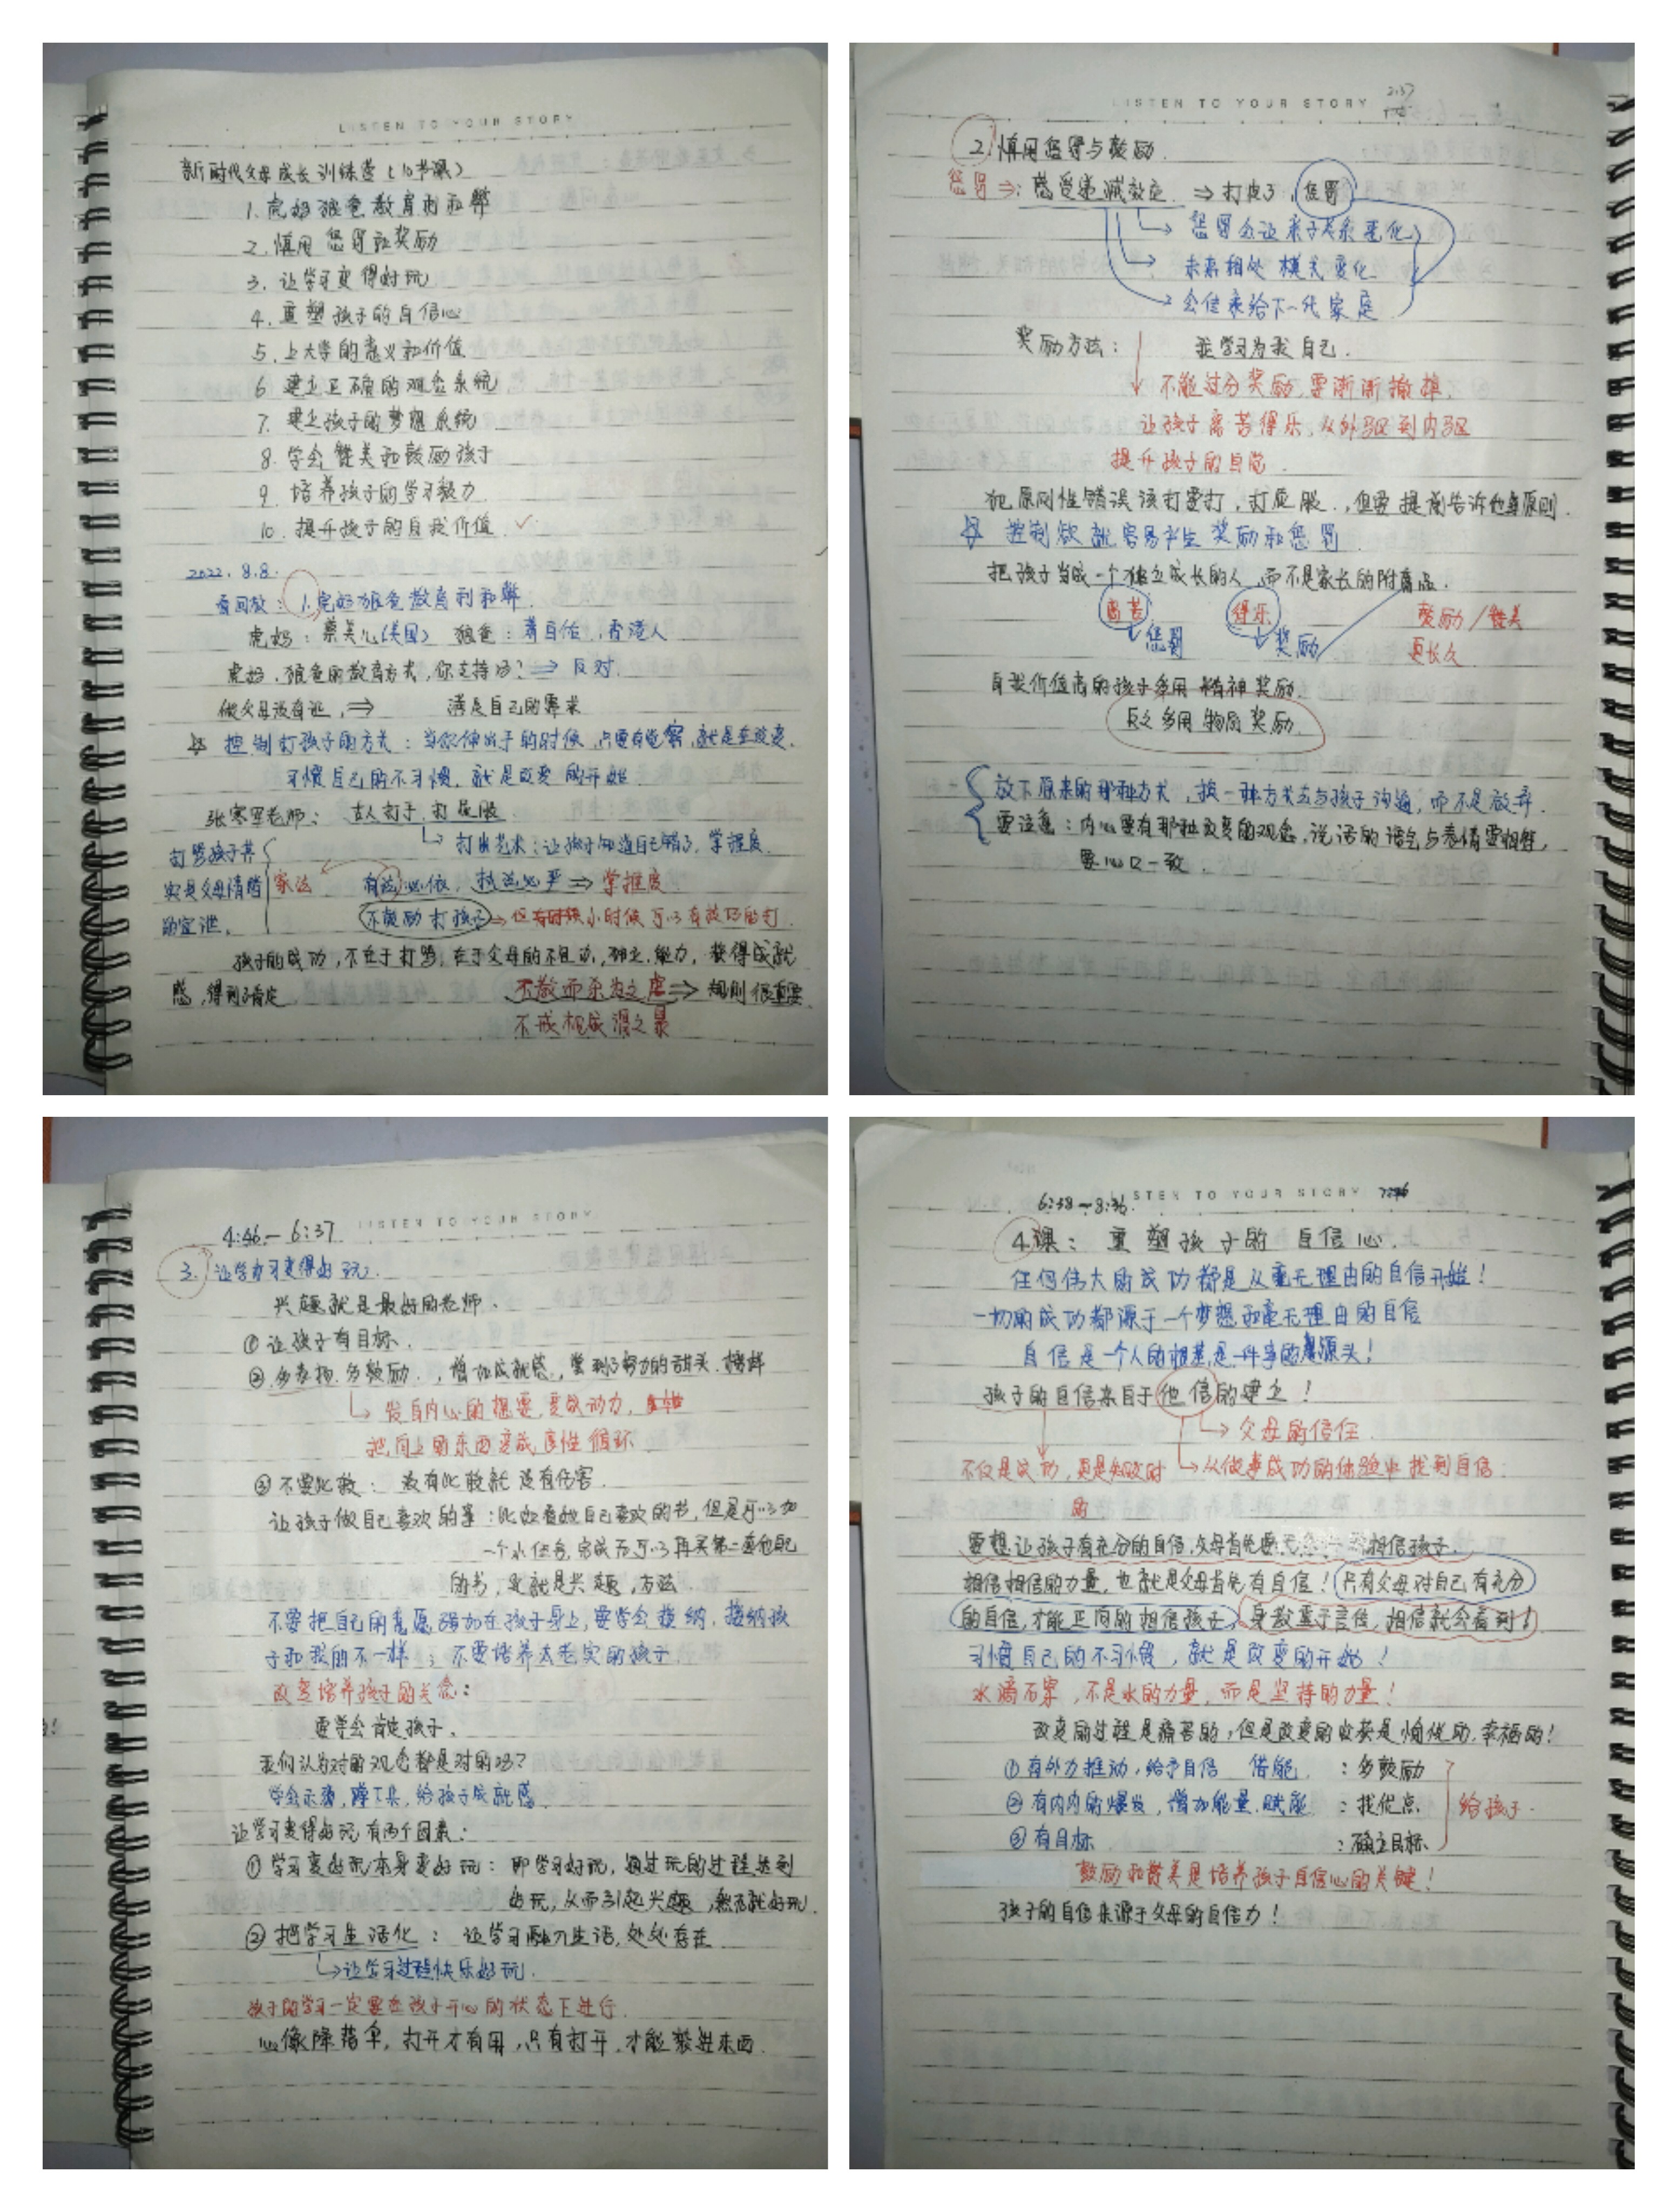 LISTEN TO YOUR STORY
新时代父母成长训练营（10节课）
1. 虎妈狼爸教育的利弊
2. 慎用惩罚和奖励
3. 让学习变得好玩
4. 重塑孩子的自信心
5. 上大学的意义和价值
6. 建立正确的观念系统
7. 建立孩子的梦想系统
8. 学会赞美和鼓励孩子
9. 培养孩子的学习毅力
10. 提升孩子的自我价值 ✓
2022.8.8.
看回放：1. 虎妈狼爸教育利和弊.
虎妈：蔡美儿(美国) 狼爸：萧百佑，香港人
虎妈、狼爸的教育方式，你支持吗？⇒ 反对.
做父母没有证，⇒ 满足自己的需求
☆ 控制打孩子的方式：当你伸出手的时候，只要有觉察，就是在改变.
习惯自己的不习惯，就是改变的开始.
老师：古人打手，打屁股
打出艺术：让孩子知道自己错了，掌握度.
打骂孩子其
实是父母情绪
的宣泄.
家法
有法必依，执法必严⇒掌握度
不鼓励打孩子→但小时候可以有技巧的打.
孩子的成功，不在于打骂，在于父母的独立、能力，获得成就
感，得到了肯定
不教而杀为之虐⇒规则很重要
不戒视成谓之暴
LISTEN TO YOUR STORY
2:37
2. 慎用惩罚与鼓励.
惩罚⇒：感受递减效应 ⇒打皮了，惩罚
惩罚会让亲子关系恶化
未来相处模式变化
会传承给下一代家庭
奖励方法： 我学习为我自己.
不能过分奖励，要渐渐撤掉.
让孩子离苦得乐，从外驱到内驱
提升孩子的自觉.
犯原则性错误该打要打，打屁股，但要提前告诉他原则.
☆ 控制欲就容易产生奖励和惩罚.
把孩子当成一个独立成长的人，而不是家长的附属品.
离苦 得乐 鼓励/赞美
惩罚 奖励 更长久
自我价值高的孩子多用精神奖励.
反之多用物质奖励.
放下原来的那种方式，换一种方式去与孩子沟通，而不是放弃.
要注意：内心要有那种改变的观念，说话的语气与表情要相符，
要心口一致.
4:46 — 6:37 LISTEN TO YOUR STORY
3. 让学习变得好玩.
兴趣就是最好的老师.
① 让孩子有目标.
② 多表扬、多鼓励，增加成就感，尝到了努力的甜头.榜样
发自内心的想要，变成动力，
把向上的东西变成良性循环
③ 不要比较：没有比较就没有伤害.
让孩子做自己喜欢的事：比如看她自己喜欢的书，但是可以加
一个小任务，完成后可以再买第二套他自己
的书，这就是兴趣，方法.
不要把自己的意愿强加在孩子身上，要学会接纳，接纳孩
子和我的不一样；不要培养太老实的孩子
改变培养孩子的关念：
要学会肯定孩子.
我们认为对的观念都是对的吗？
学会示弱，蹲下来，给孩子成就感.
让学习变得好玩有两个因素：
① 学习变好玩本身变好玩：即学习好玩，通过玩的过程达到
好玩，从而引起兴趣，然后就好玩.
② 把学习生活化：让学习融入生活，处处存在
→让学习过程快乐好玩.
孩子的学习一定要在孩子开心的状态下进行.
心像降落伞，打开才有用，只有打开，才能装进东西.
6:38—8:36 LISTEN TO YOUR STORY
4课：重塑孩子的自信心.
任何伟大的成功都是从毫无理由的自信开始！
一切的成功都源于一个梦想和毫无理由的自信
自信是一个人的根基，是一件事的源头！
孩子的自信来自于他信的建立！
父母的信任
不仅是成功，更是失败时 从做事成功的体验中找到自信.
的
要想让孩子有充分的自信，父母首先要相信孩子.
相信相信的力量，也就是父母首先有自信！只有父母对自己有充分
的自信，才能正向的相信孩子，身教重于言传，相信就会看到！
习惯自己的不习惯，就是改变的开始！
水滴石穿，不是水的力量，而是坚持的力量！
改变的过程是痛苦的，但是改变的收获是愉悦的、幸福的！
① 有外力推动，给予自信 借能 ：多鼓励
② 有内内的爆发，增加能量.赋能 ：找优点 给孩子.
③ 有目标 ：确立目标
鼓励和赞美是培养孩子自信心的关键！
孩子的自信来源于父母的自信力！